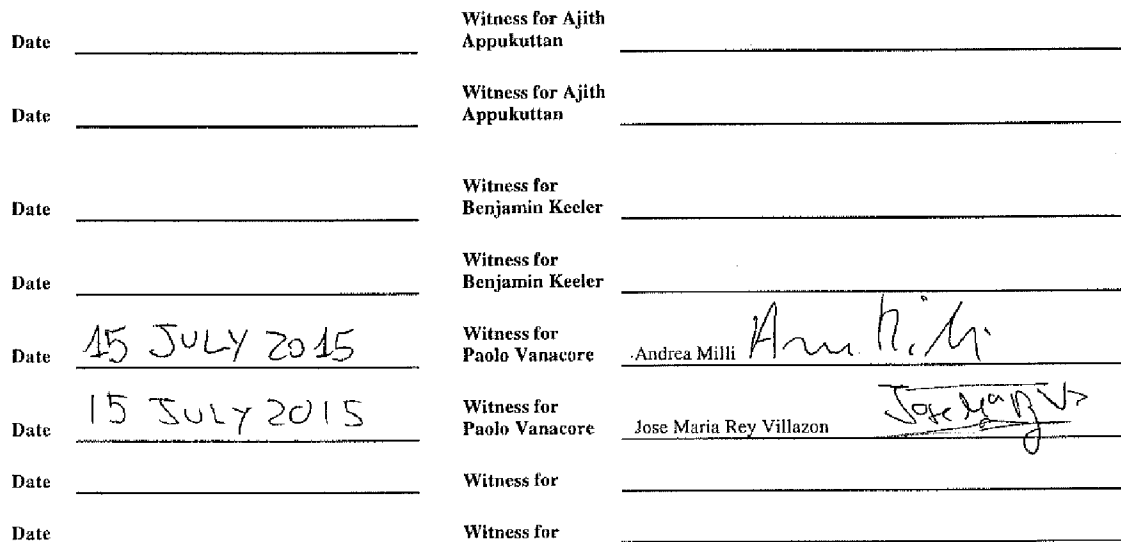 Witness for Ajith
Date Appukuttan
Witness for Ajith
Date Appukuttan
Witness for
Date Benjamin Keeler
Witness for
Date Benjamin Keeler
15 JULY 2015 Witness for
Date Paolo Vanacore Andrea Milli
15 JULY 2015 Witness for
Date Paolo Vanacore Jose Maria Rey Villazon
Date Witness for
Date Witness for